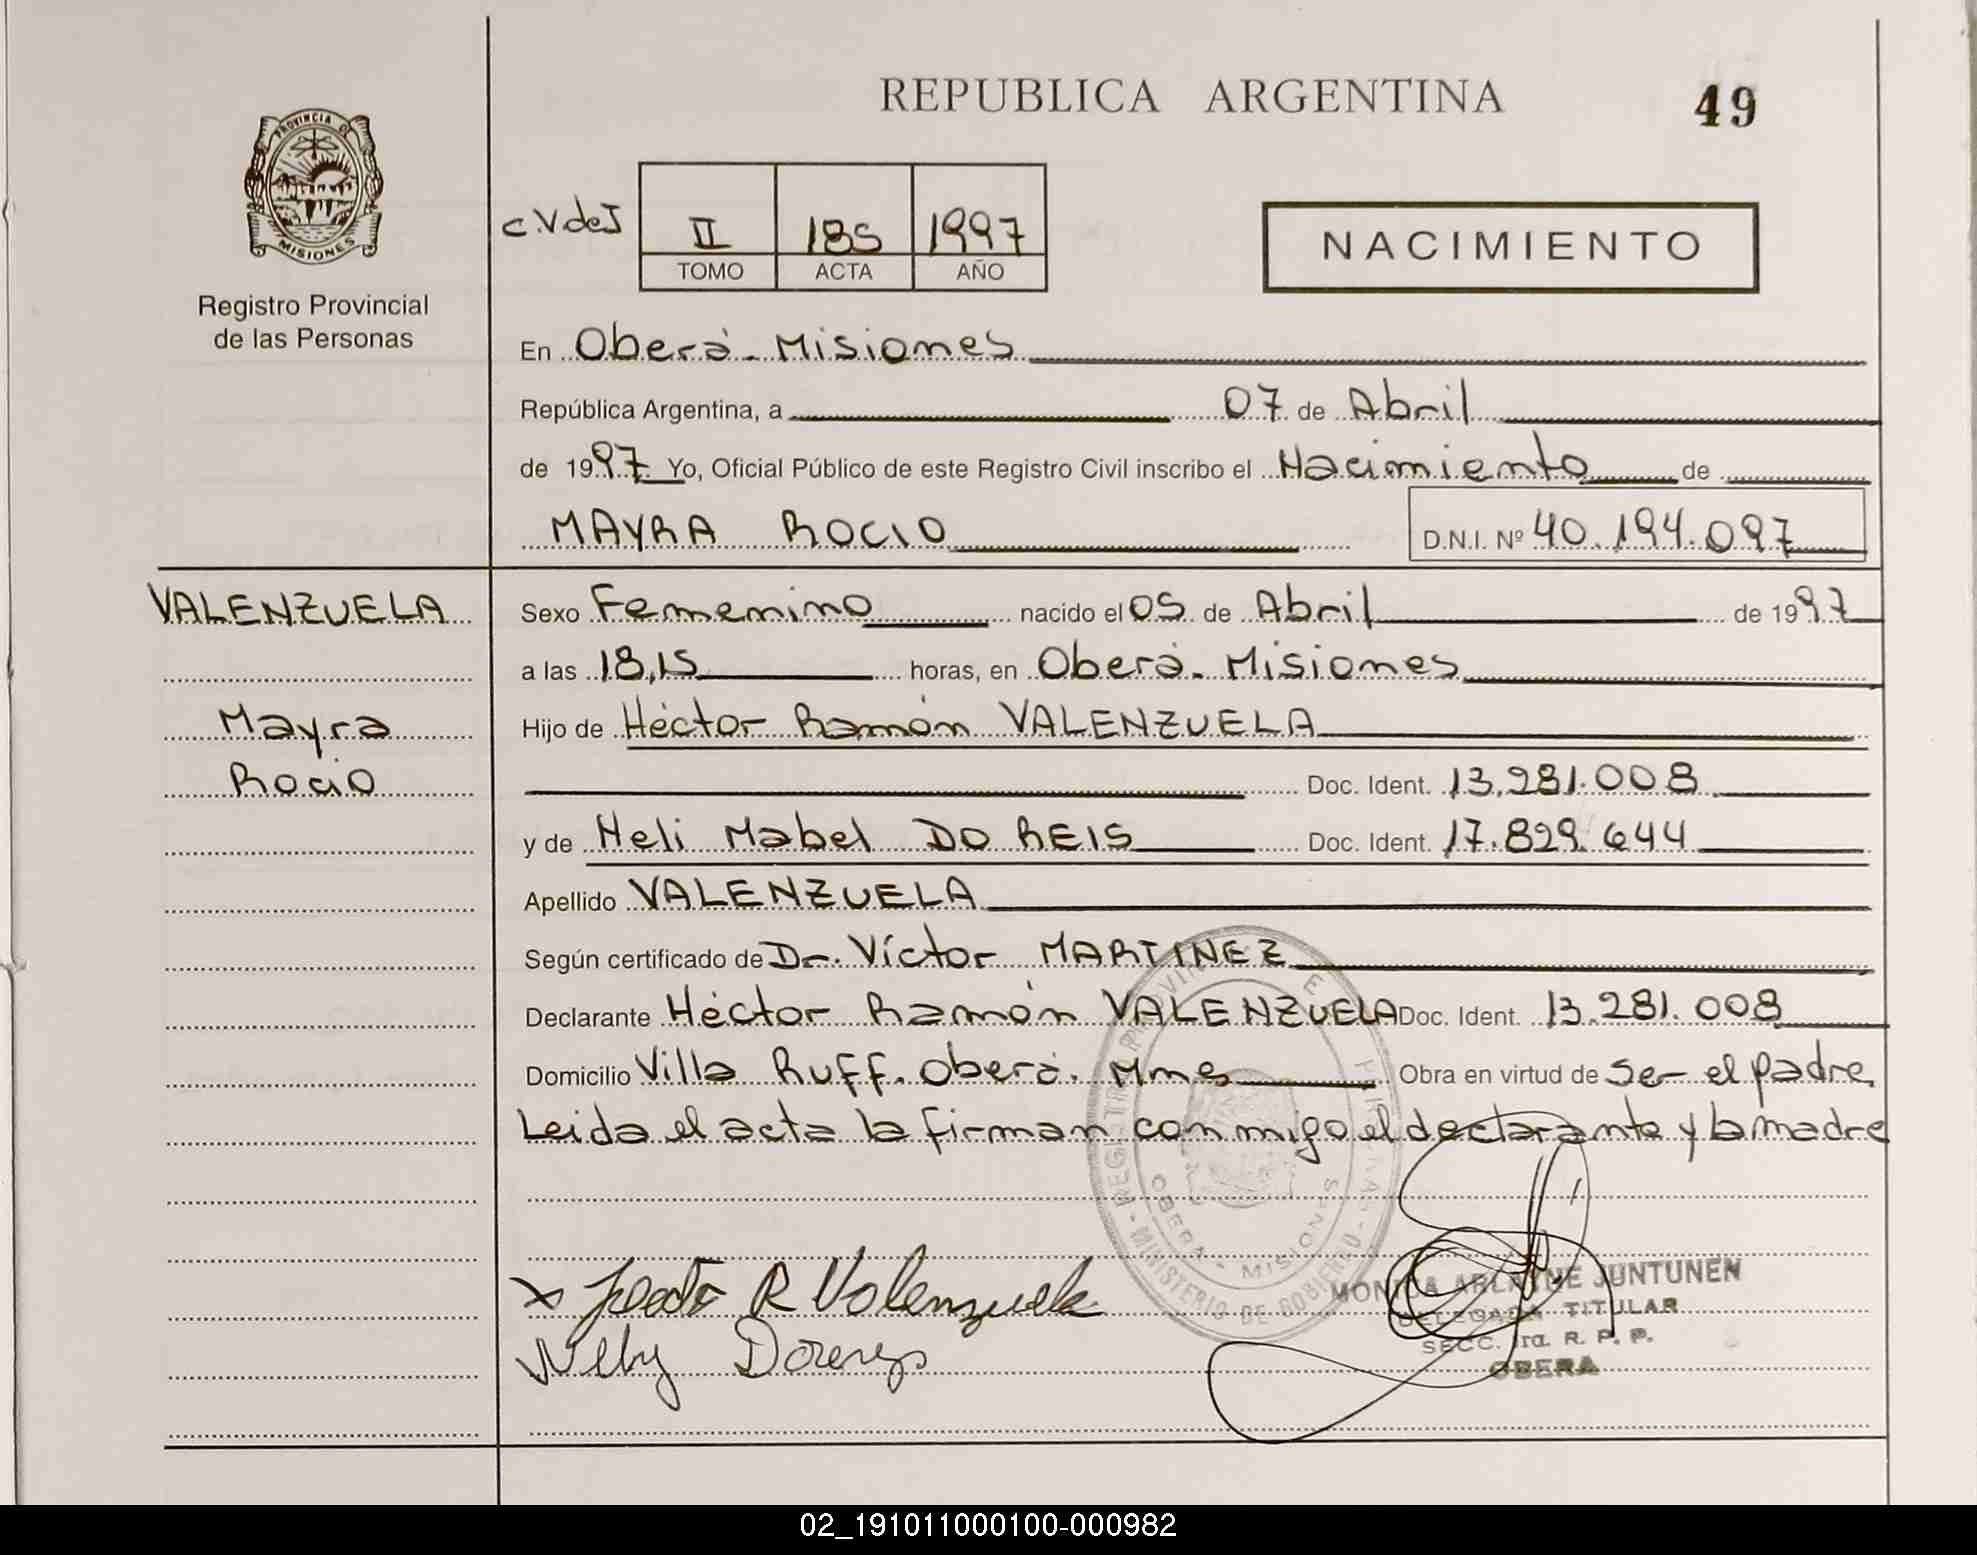 REPUBLICA ARGENTINA
49
PROVINCIA DE
MISIONES
Registro Provincial
de las Personas
C.V de J
II 185 1997
TOMO ACTA AÑO
NACIMIENTO
En Oberá - Misiones
República Argentina, a 07 de Abril
de 1997 Yo, Oficial Público de este Registro Civil inscribo el Nacimiento de
MAYRA ROCIO D.N.I. Nº 40.194.097
VALENZUELA
Mayra
Rocio
Sexo Femenino nacido el 05 de Abril de 1997
a las 18,15 horas, en Oberá - Misiones
Hijo de Héctor Ramón VALENZUELA
Doc. Ident. 13.281.008
y de Neli Mabel DO REIS Doc. Ident. 17.829.644
Apellido VALENZUELA
Según certificado de Dr. Víctor MARTINEZ
Declarante Héctor Ramón VALENZUELA Doc. Ident. 13.281.008
Domicilio Villa Ruff. Oberá. Mnes Obra en virtud de ser el padre,
Leida el acta la firman conmigo el declarante y la madre
R Valenzuela
MONICA ARLAYNE JUNTUNEN
DELEGADA TITULAR
SECC. 1ra. R. P. P.
OBERA
REGISTRO PROVINCIAL DE LAS PERSONAS - MINISTERIO DE GOBIERNO -
OBERA - MISIONES
02_191011000100-000982